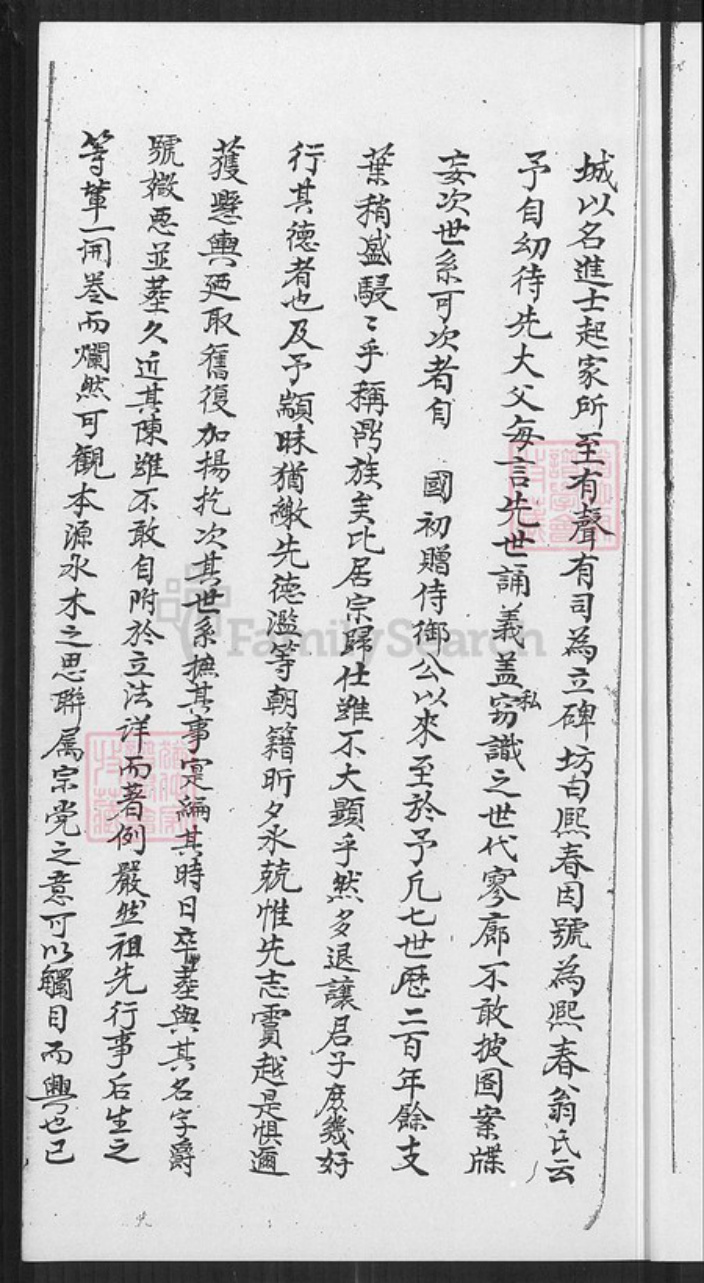 城以名進士起家所至有聲有司為立碑坊曰熙春因號為熙春翁氏云
予自幼待先大父每言先世誦義盖私窃識之世代寥廊不敢披圖案牒
妄次世系可次者自 國初贈侍御公以來至於予凡七世歷二百年餘支
葉稍盛駸〻乎稱鼎族矣比居宗歸仕雖不大顯乎然多退讓君子庶幾好
行其德者也及予顓昧猶繳先德濫等朝籍昕夕氷兢惟先志霣越是惧邇
獲懸輿廼取舊復加揚扢次其世系摭其事寔編其時日卒塟與其名字爵
號媺惡並塟久近其陳雖不敢自附於立法详而著例嚴然祖先行事后生之
等輩一開卷而爛然可觀本源水木之思聯属宗党之意可以觸目而興也已
FamilySearch